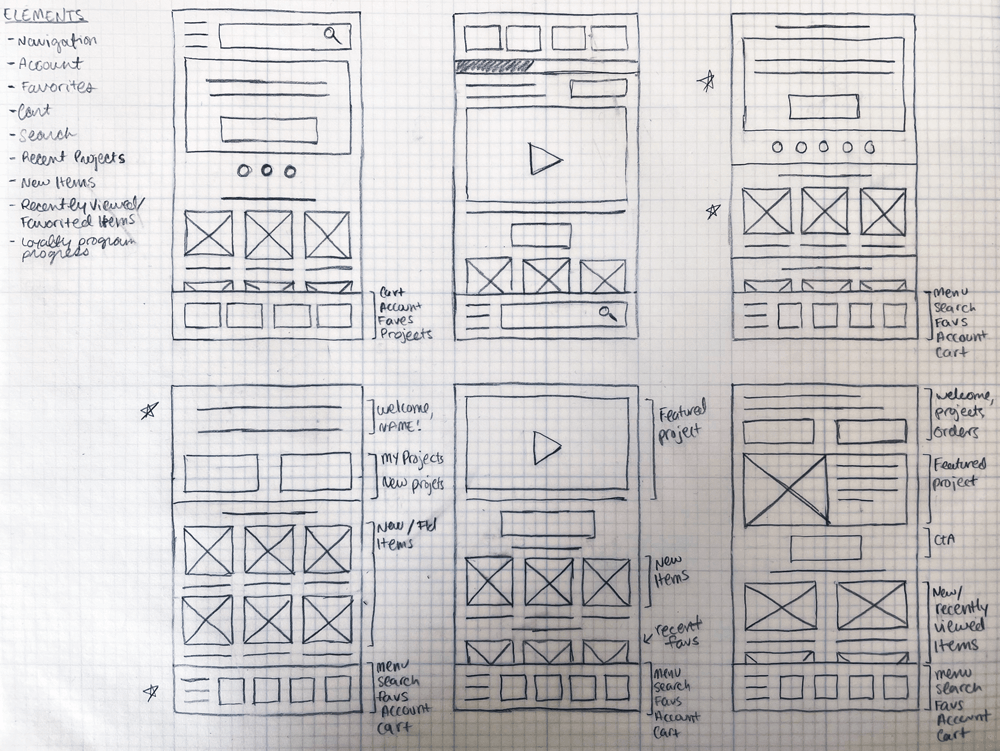 ELEMENTS
- Navigation
- Account
- Favorites
- Cart
- Search
- Recent Projects
- New Items
- Recently Viewed/
Favorited Items
- Loyalty program
progress
Cart
Account
Faves
Projects
menu
search
Favs
Account
Cart
welcome,
NAME!
My Projects
New projets
New / Ftd
Items
menu
search
Favs
Account
cart
Featured
project
New
Items
recent
favs
Menu
Search
Favs
Account
Cart
welcome,
projects,
orders
Featured
project
CtA
New/
recently
viewed
Items
menu
search
Favs
Account
Cart